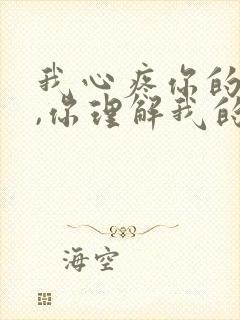 我心疼你的
,你理解我的
海空